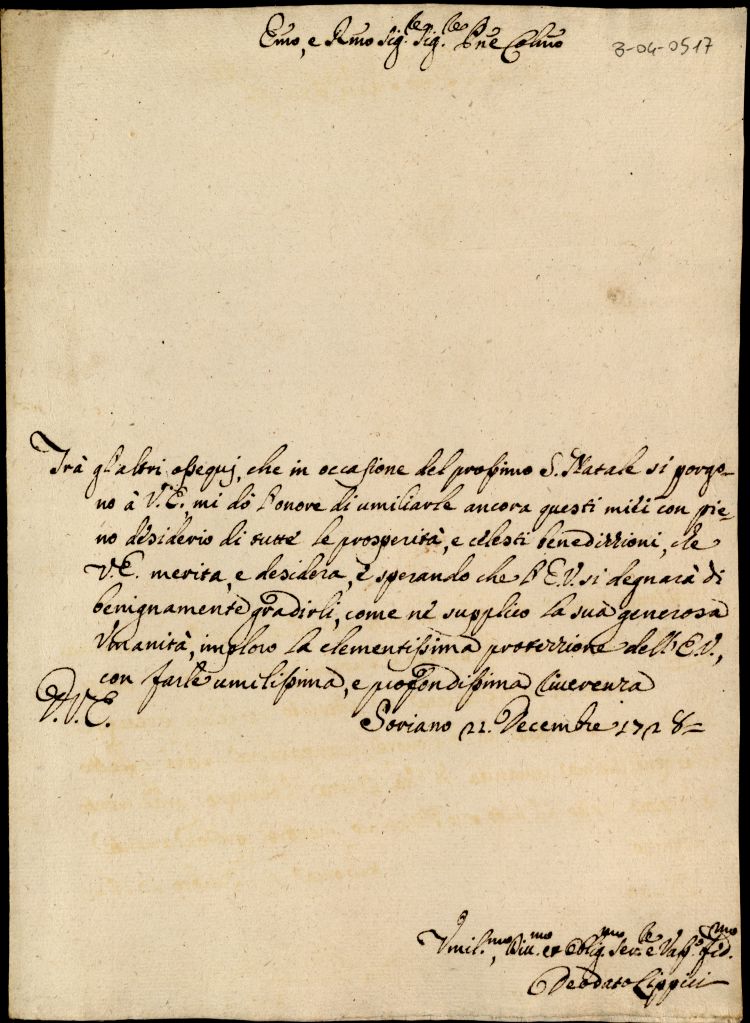 Emo, e Rmo Sig.re Sig.re Pne Colmo
3-04-0517
Trà gl'altri ossequj, che in occasione del prossimo S. Natale si porgo-
no à V.E. mi dò l'onore di umiliarle ancora questi miei con pie-
no desiderio di tutte le prosperità, e celesti benedizzioni, che
V.E. merita, e desidera, e sperando che l'E.V. si degnarà di
benignamente gradirli, come nè supplico la sua generosa
Umanità, imploro la clementissima protezzione dell'E.V.,
con farle umilissima, e profondissima riverenza
D.V.E.
Soriano 21. Decembre 1728=
Umil.mo, Div.mo et Oblig.mo Ser.e e Vass.o fid.mo
Deodato Lippici